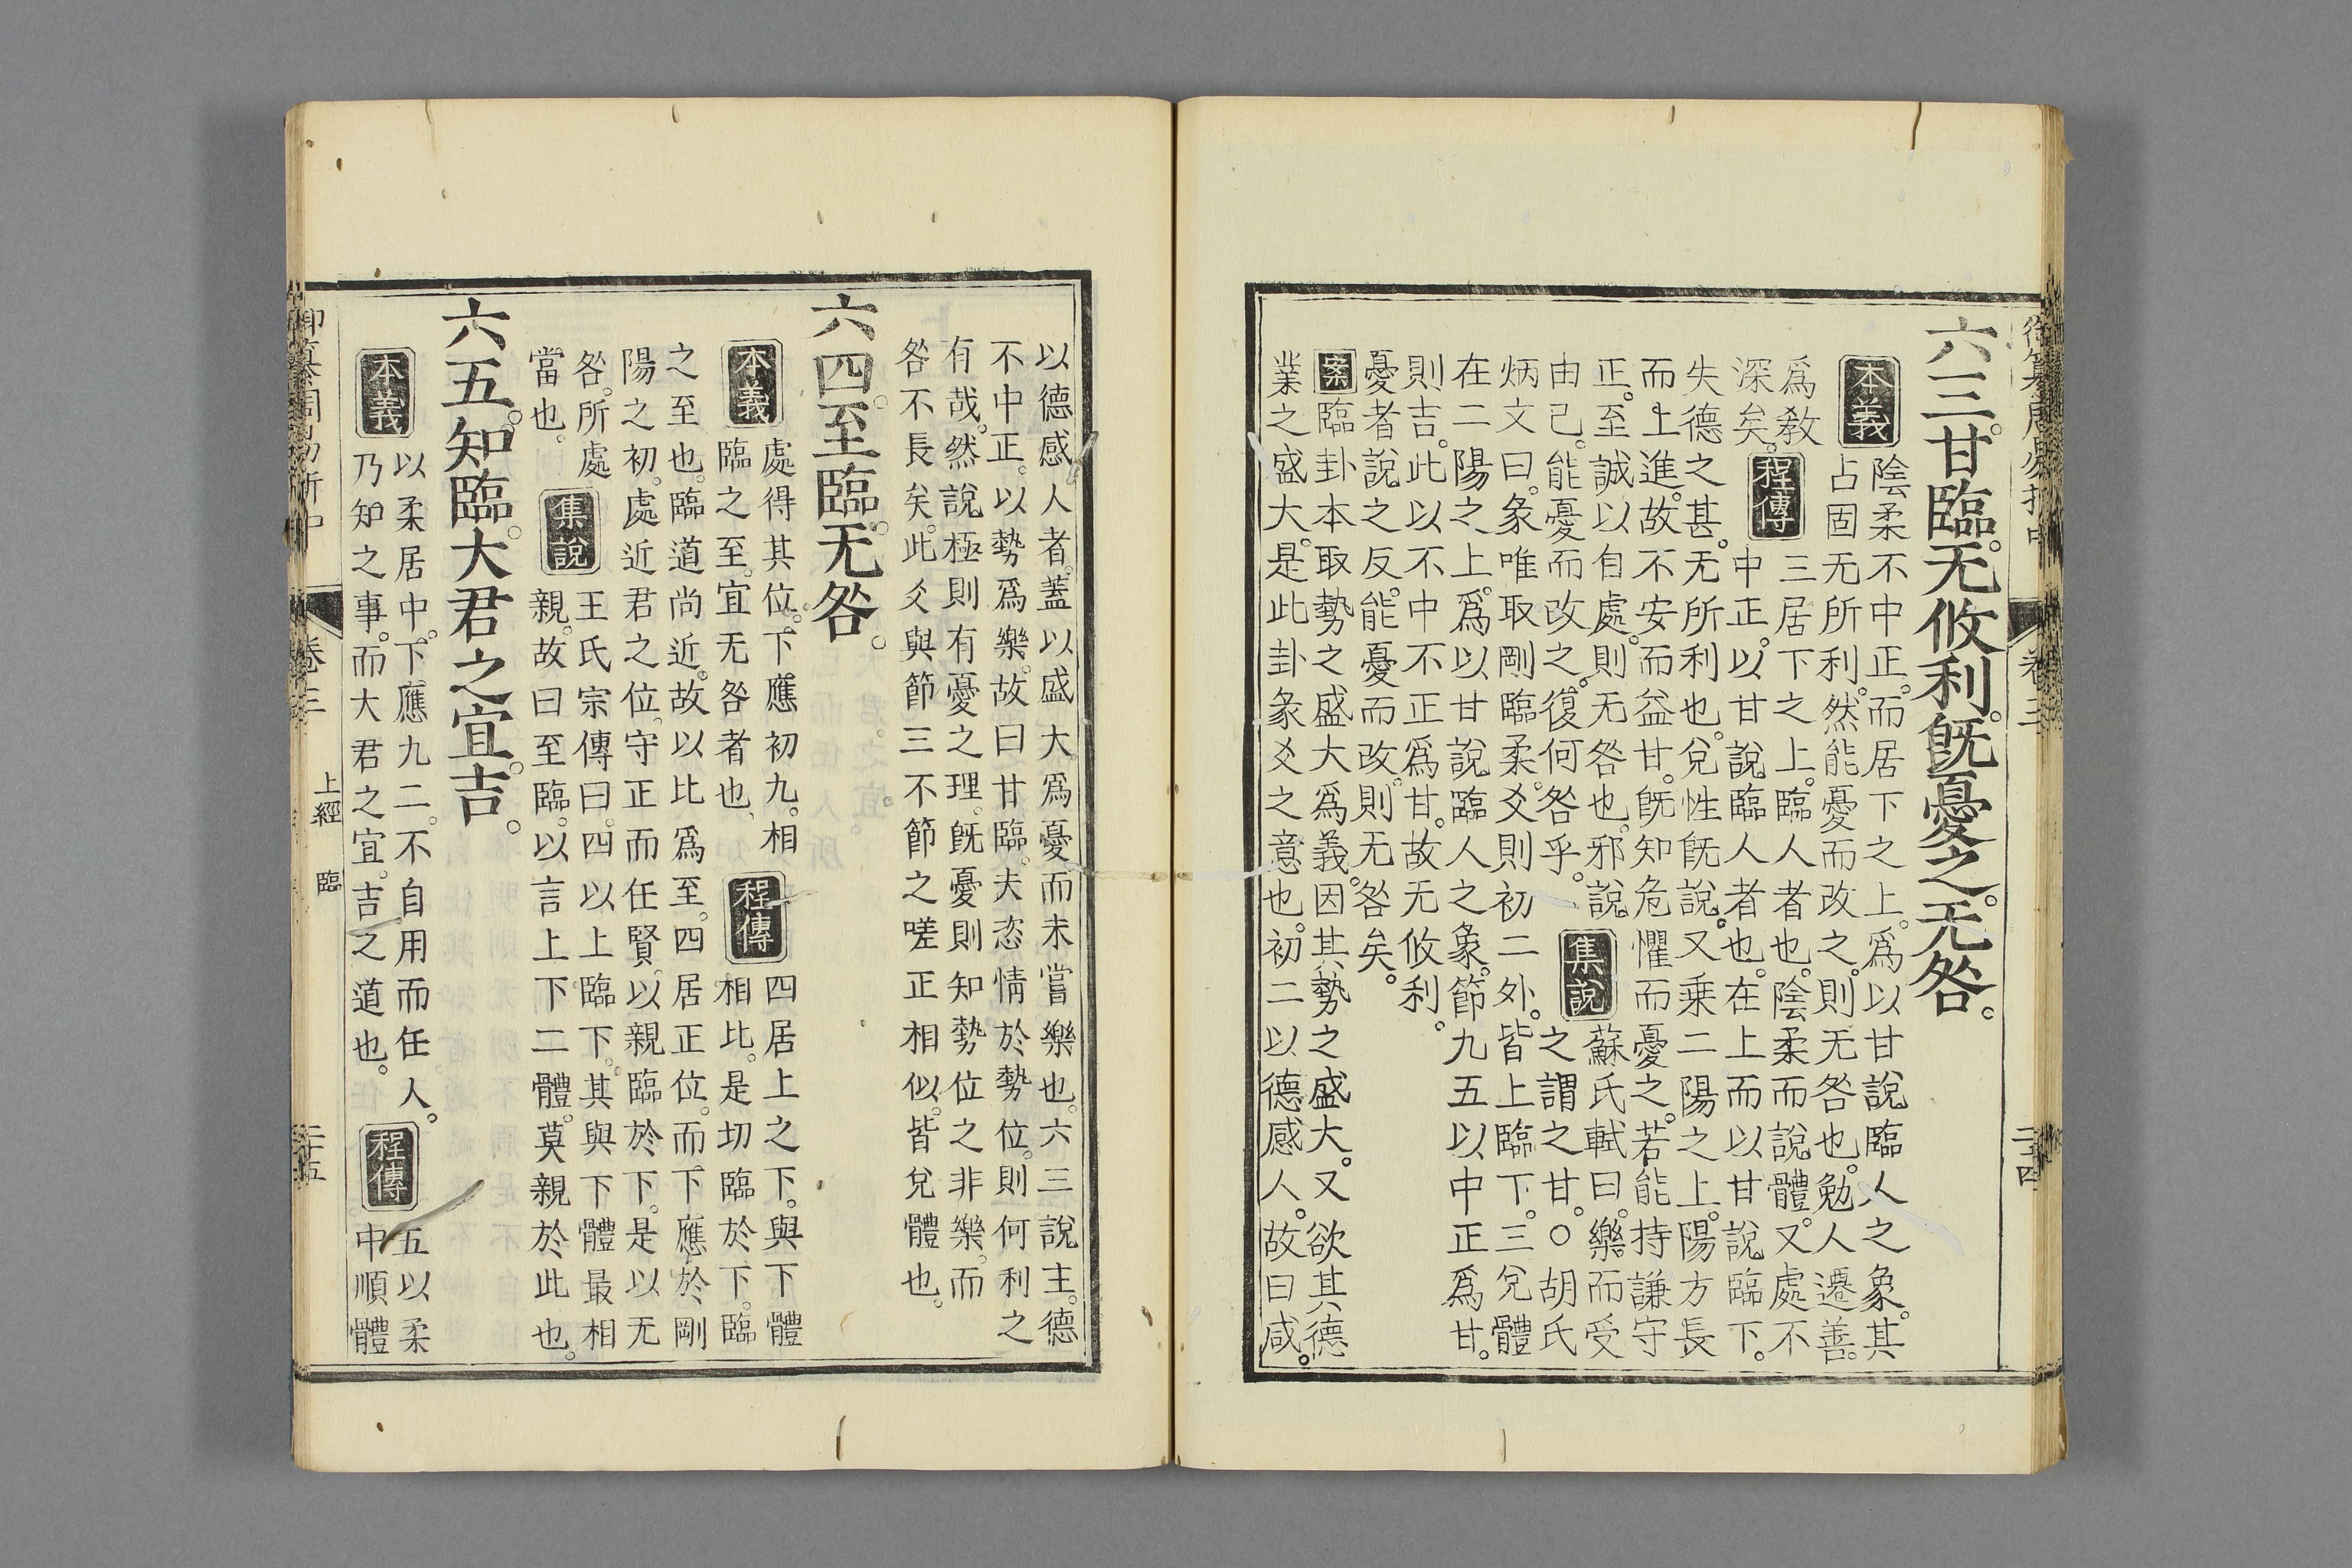 御纂周易折中 卷三 二十四
六三。甘臨。无攸利。旣憂之。无咎。
本義
陰柔不中正。而居下之上。爲以甘說臨人之象。其
占固无所利。然能憂而改之。則无咎也。勉人遷善。
爲教
深矣。
程傳
三居下之上。臨人者也。陰柔而說體。又處不
中正。以甘說臨人者也。在上而以甘說臨下。
失德之甚。无所利也。兌性旣說。又乗二陽之上。陽方長
而上進。故不安而益甘。旣知危懼而憂之。若能持謙守
正。至誠以自處。則无咎也。邪說
由己。能憂而改之。復何咎乎。
集說
蘇氏軾曰。樂而受
之謂之甘。○胡氏
炳文曰。彖唯取剛臨柔。爻則初二外。皆上臨下。三兌體
在二陽之上。爲以甘說臨人之象。節九五以中正爲甘。
則吉。此以不中不正爲甘。故无攸利。
憂者說之反。能憂而改。則无咎矣。
案臨卦本取勢之盛大爲義。因其勢之盛大。又欲其德
業之盛大。是此卦彖爻之意也。初二以德感人。故曰咸。
以德感人者。蓋以盛大爲憂而未嘗樂也。六三說主。德
不中正。以勢爲樂。故曰甘臨。夫恣情於勢位。則何利之
有哉。然說極則有憂之理。旣憂則知勢位之非樂。而
咎不長矣。此爻與節三不節之嗟正相似。皆兌體也。
六四。至臨。无咎。
本義
處得其位。下應初九。相
臨之至。宜无咎者也。
程傳
四居上之下。與下體
相比。是切臨於下。臨
之至也。臨道尚近。故以比爲至。四居正位。而下應於剛
陽之初。處近君之位。守正而任賢。以親臨於下。是以无
咎。所處
當也。
集說
王氏宗傳曰。四以上臨下。其與下體最相
親。故曰至臨。以言上下二體。莫親於此也。
六五。知臨。大君之宜。吉。
本義
以柔居中。下應九二。不自用而任人。
乃知之事。而大君之宜。吉之道也。
程傳
五以柔
中順體
御纂周易折中 卷三 上經 臨 二十五